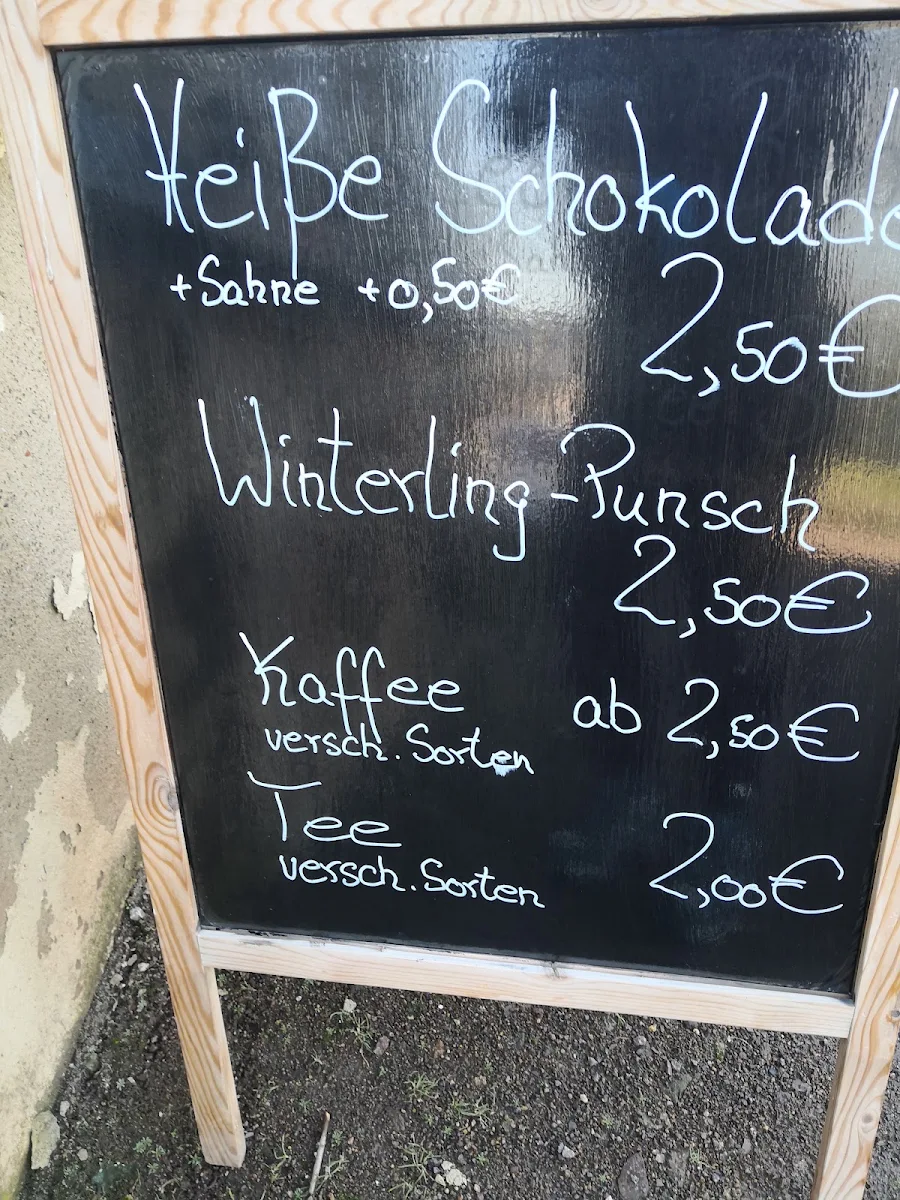 Heiße Schokolade
+Sahne +0,50€
2,50€
Winterling-Punsch
2,50€
Kaffee ab 2,50€
versch. Sorten
Tee
versch. Sorten 2,00€